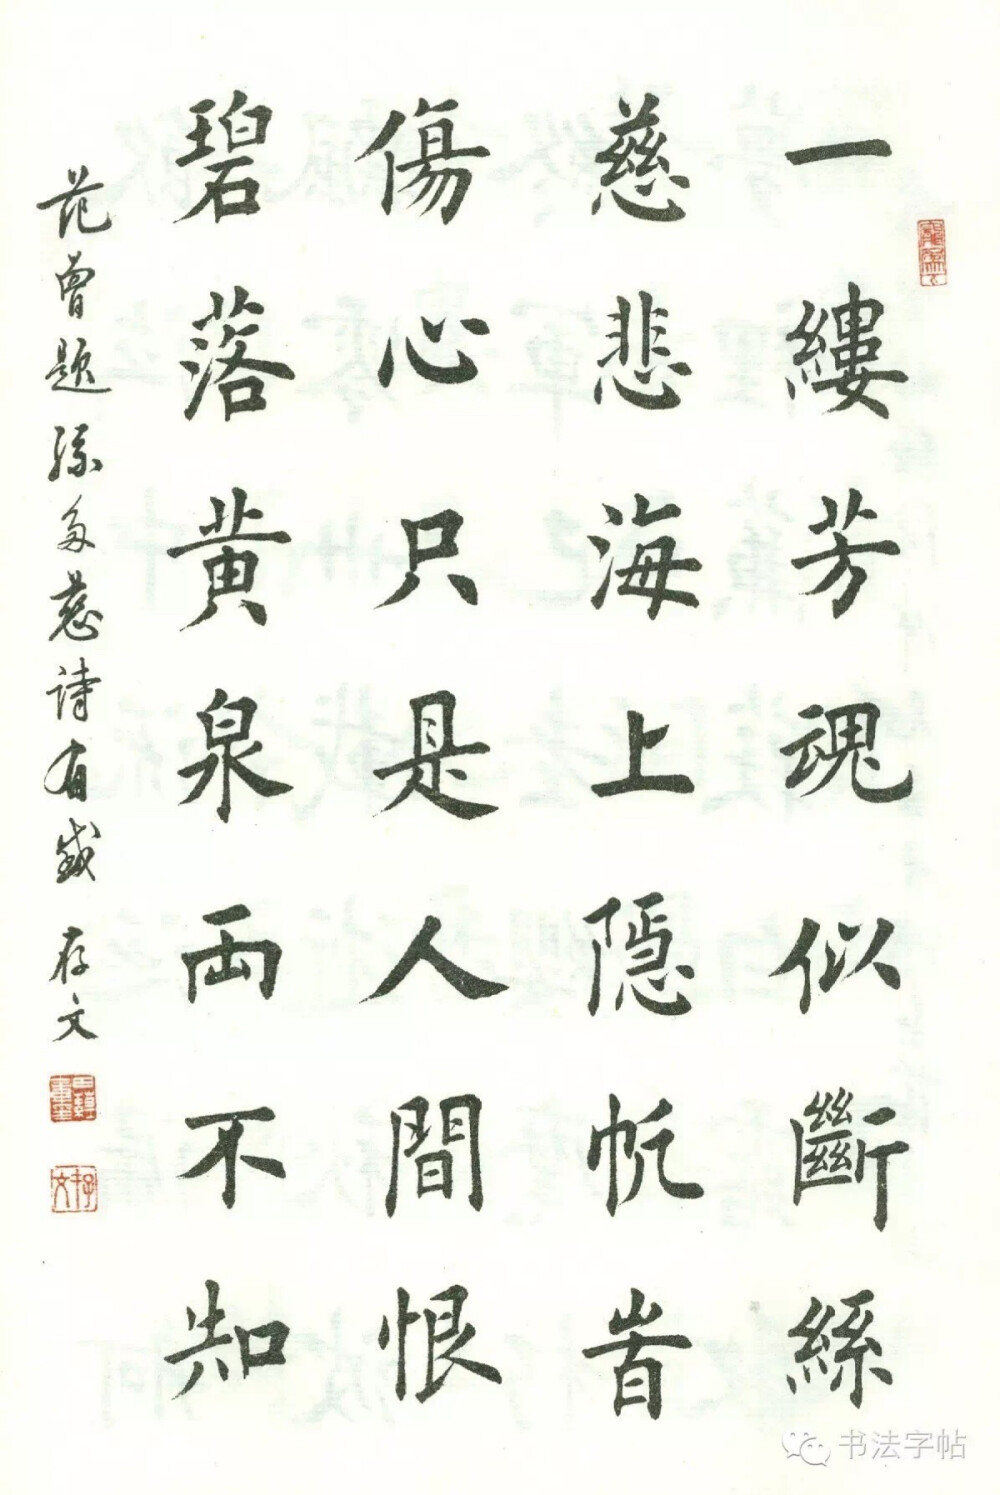 一縷芳魂似斷絲
慈悲海上隱帆旹
傷心只是人間恨
碧落黄泉両不知
范曾題孫多慈詩有感 存文
存文
书法字帖